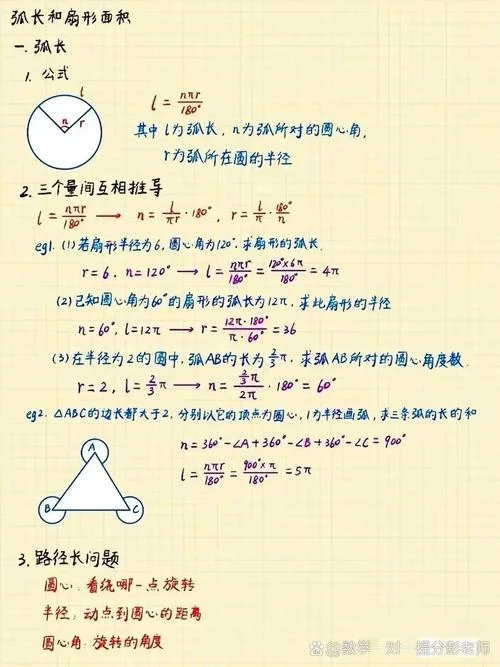 弧长和扇形面积
一.弧长
1. 公式
l
n
r
l = nπr/180°
其中 l 为弧长, n为弧所对的圆心角,
r为弧所在圆的半径
2. 三个量间互相推导
l = nπr/180° → n = l/πr · 180°, r = l/π · 180°/n
eg1. (1) 若扇形半径为6, 圆心角为120°. 求扇形的弧长.
r = 6, n = 120° → l = nπr/180° = 120°×6π/180° = 4π
(2) 已知圆心角为60°的扇形的弧长为12π, 求此扇形的半径
n = 60°, l = 12π → r = 12π·180°/π·60° = 36
(3) 在半径为2的圆中, 弧AB的长为2/3π, 求弧AB所对的圆心角度数.
r = 2, l = 2/3π → n = 2/3π/2π · 180° = 60°
eg2. △ABC的边长都大于2, 分别以它的顶点为圆心, 1为半径画弧, 求三条弧的长的和
A
B
C
n = 360° - ∠A + 360° - ∠B + 360° - ∠C = 900°
l = nπr/180° = 900°×π/180° = 5π
3. 路径长问题
圆心: 看绕哪一点旋转
半径: 动点到圆心的距离
圆心角: 旋转的角度
@数学一对一提分彭老师